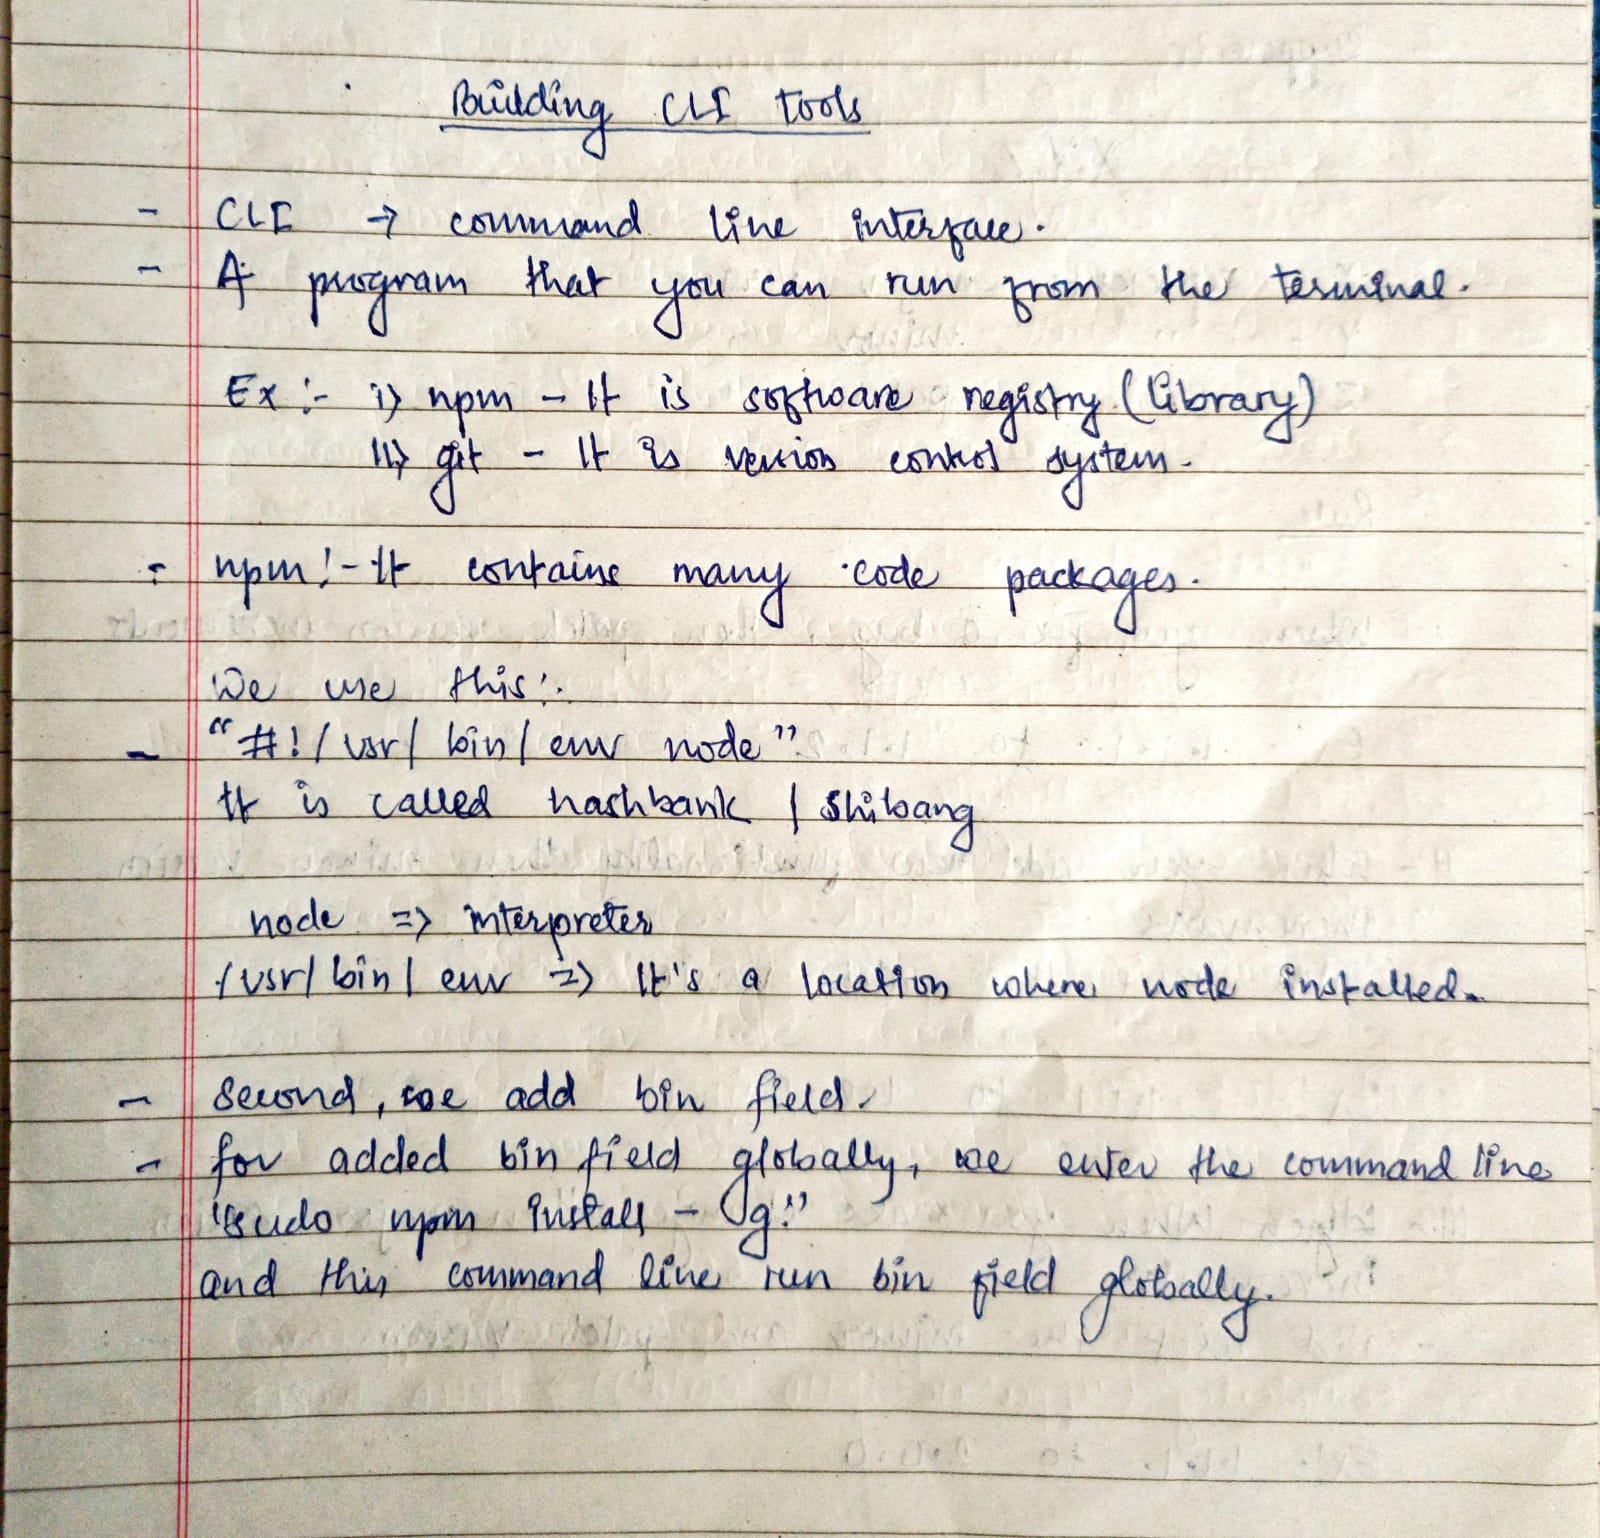 Building CLI tools
- CLI → command line interface.
- A program that you can run from the terminal.
Ex :- i) npm - It is software registry (library)
ii) git - It is version control system.
- npm :- It contains many code packages.
We use this :.
- "#! /usr/ bin/ env node"
It is called hashbank / Shibang
node => interpreter
/usr/ bin/ env => It's a location where node installed.
- Second, we add bin field.
- for added bin field globally, we enter the command line
"sudo npm install - g."
and this command line run bin field globally.